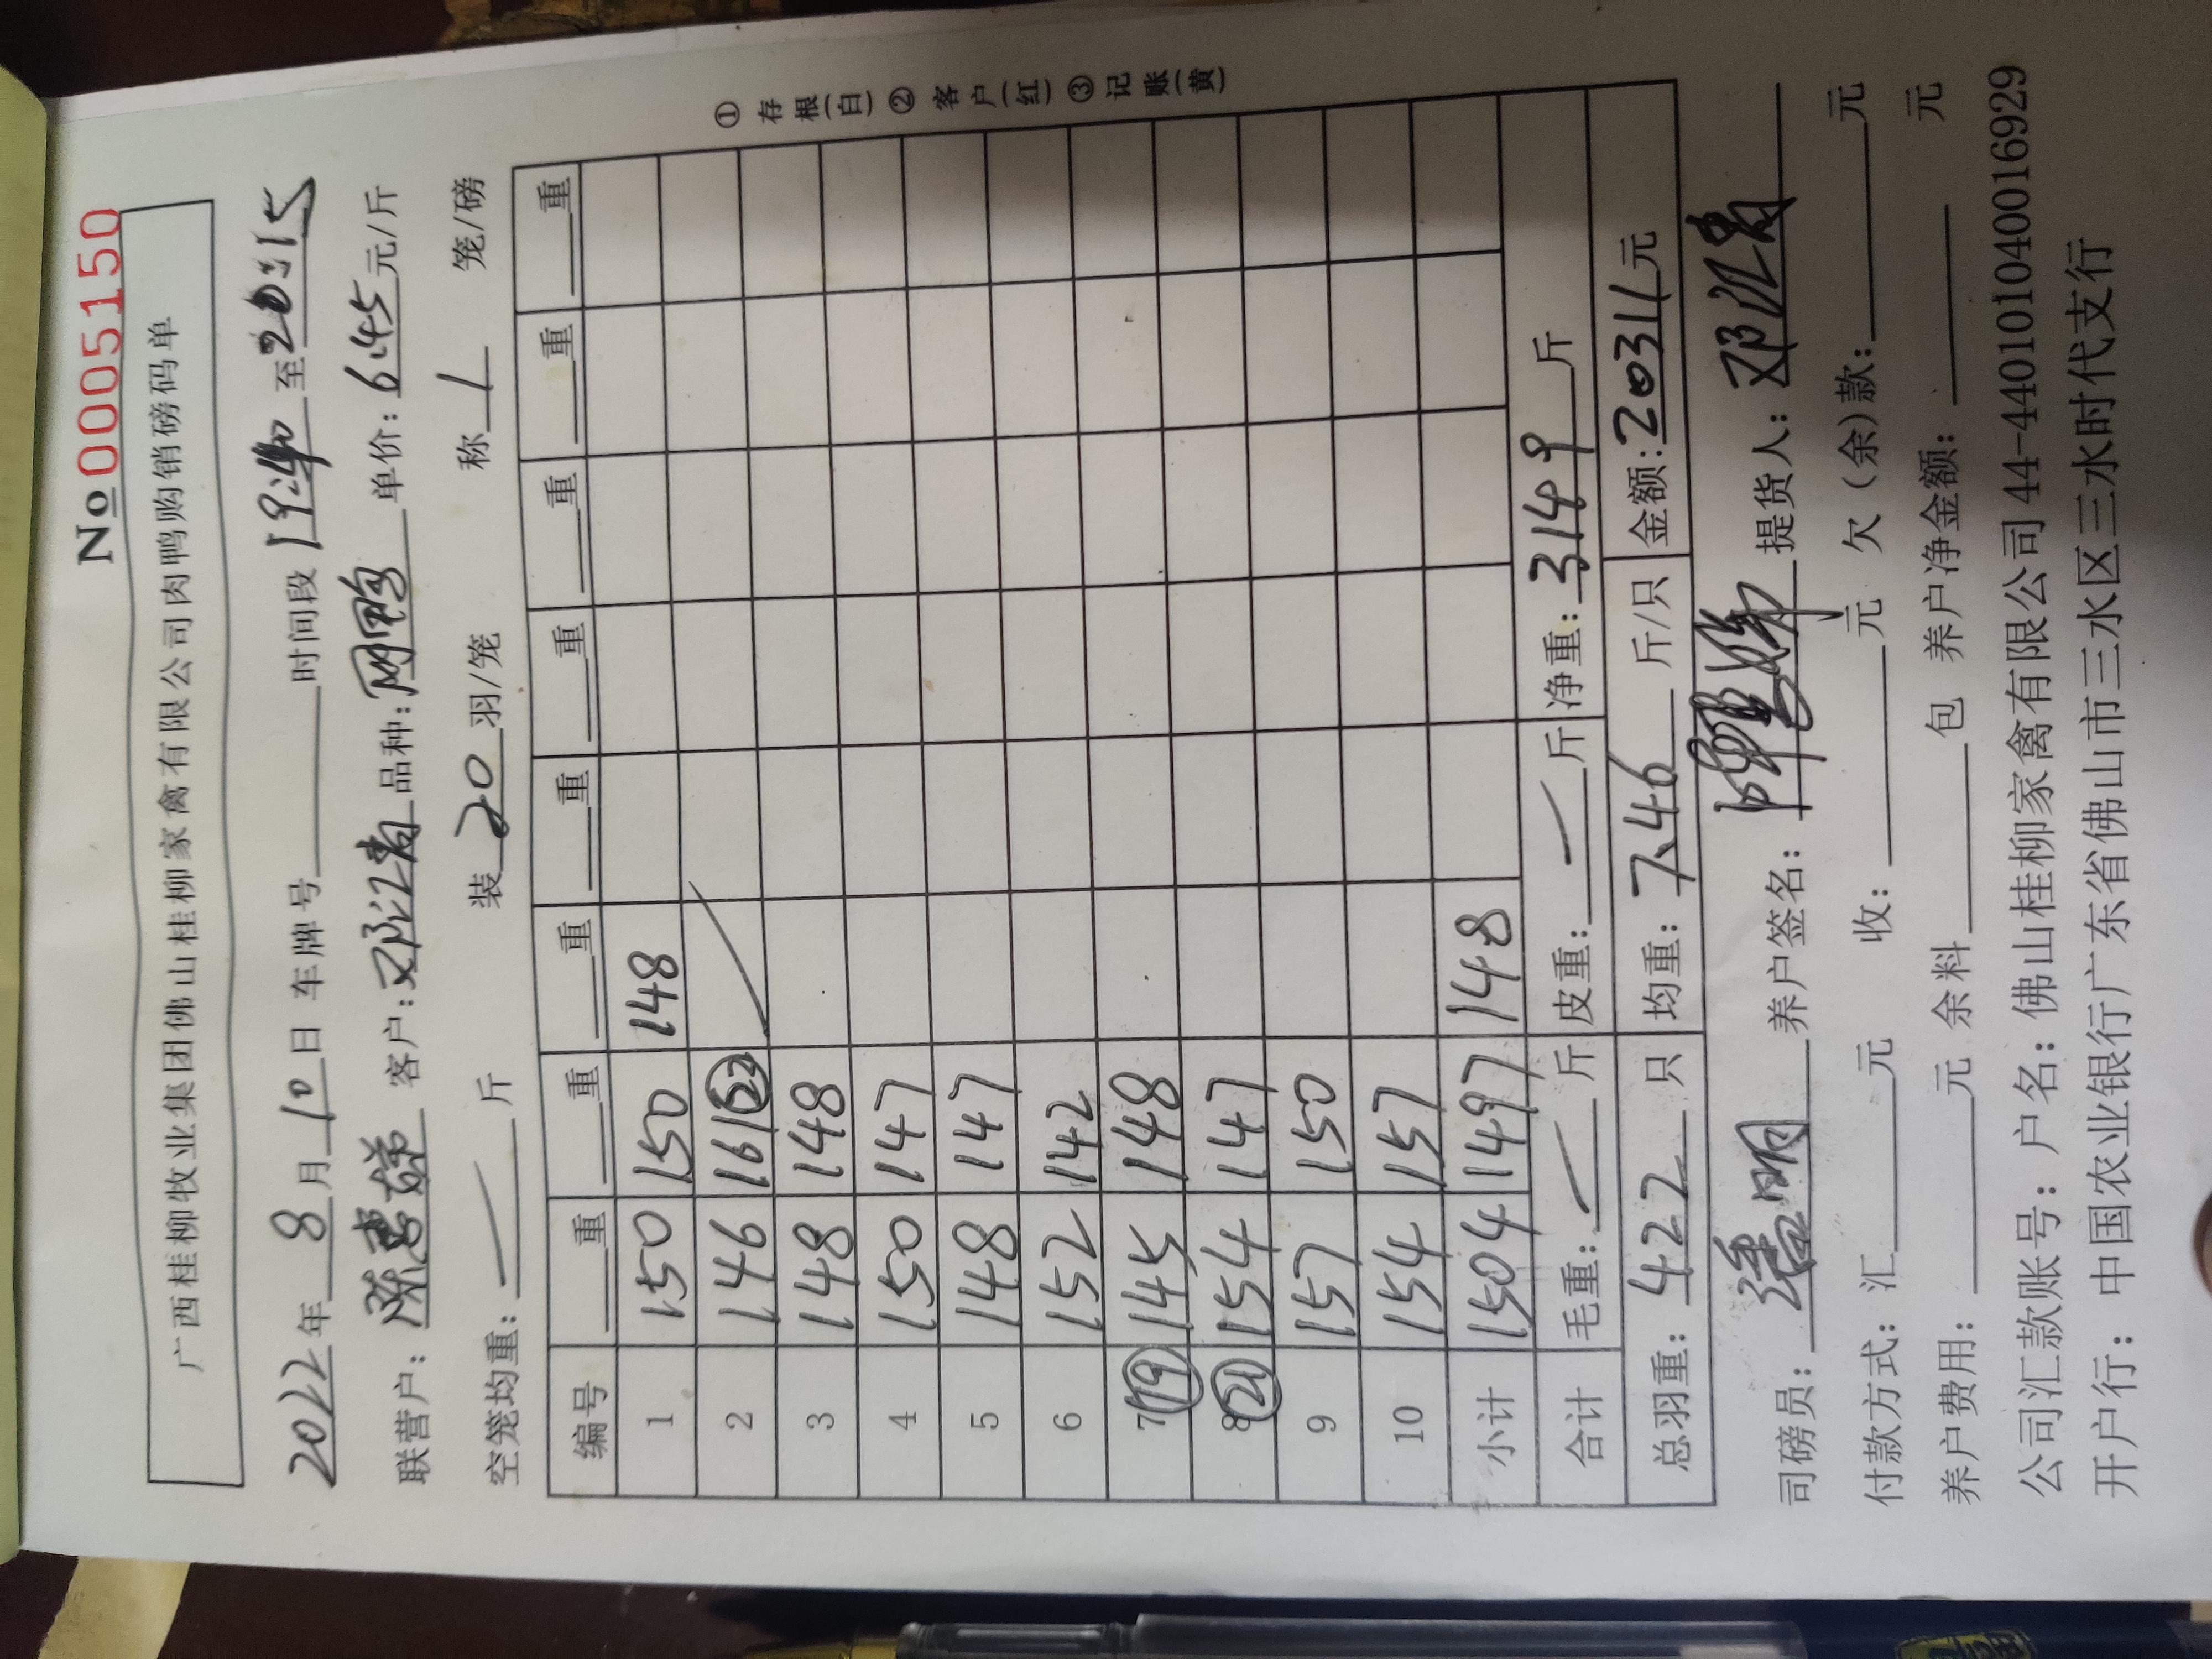 No 0005150
广西桂柳牧业集团佛山桂柳家禽有限公司肉鸭购销磅码单
2022年 8月 10日 车牌号 时间段 19:40 至 20:15
联营户: 客户: 邓江清 品种: 网鸭 单价: 6.45元/斤
空笼均重: 一 斤 装 20 羽/笼 称 1 笼/磅
编号 重 重 重 重 重 重 重 重
1 150 150 148
2 146 161 22
3 148 148
4 150 147
5 148 147
6 152 142
7 19 145 148
8 21 154 147
9 157 150
10 154 157
小计 1504 1497 148
合计 毛重: 一 斤 皮重: 一 斤 净重: 3149 斤
总羽重: 422 只 均重: 7.46 斤/只 金额: 20311元
①存根(白) ②客户(红) ③记账(黄)
司磅员: 潘明 养户签名: 提货人: 邓江清
付款方式: 汇 元 收: 元 欠(余)款: 元
养户费用: 元 余料 包 养户净金额: 元
公司汇款账号: 户名: 佛山桂柳家禽有限公司44-440101040016929
开户行: 中国农业银行广东省佛山市三水区三水时代支行